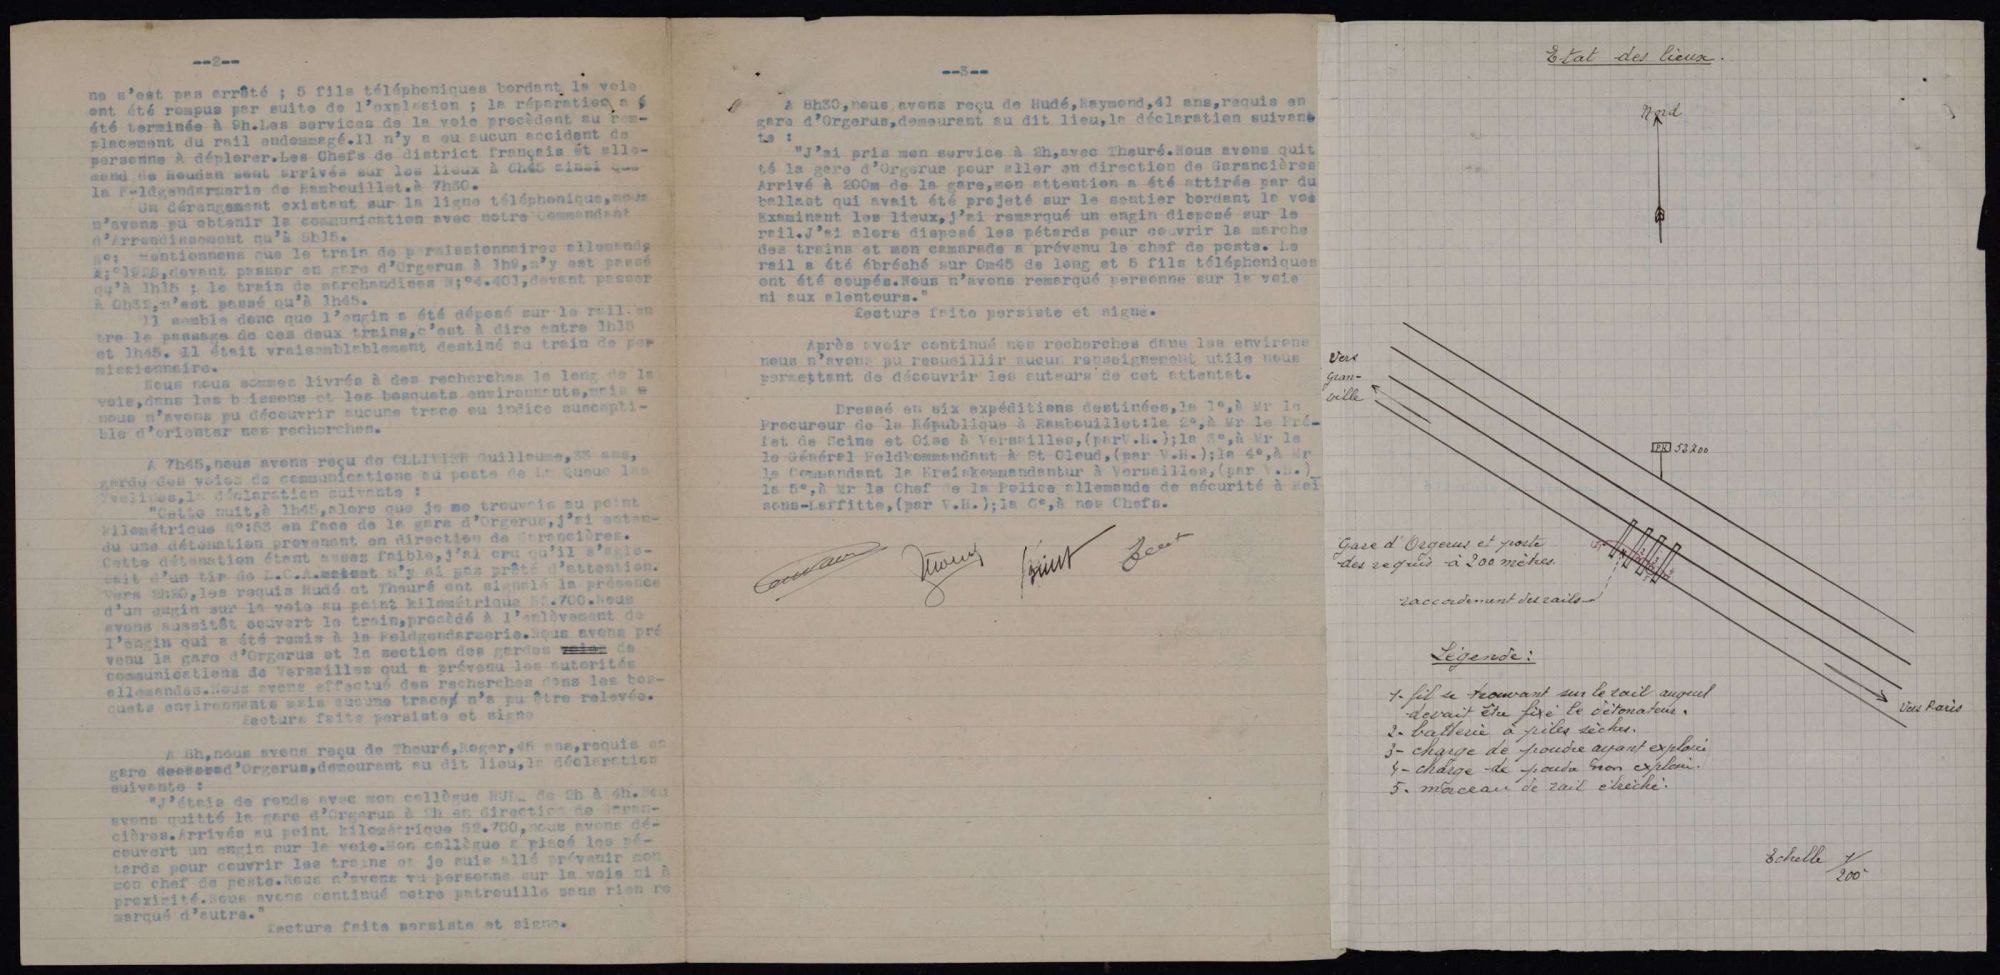 --2--
ne s'est pas arrêté ; 5 fils télépheniques bordant la voie
ont été rompus par suite de l'explosion ; la réparation a
été terminée à 9h.Les services de la voie procèdent au rem-
placement du rail endommagé.Il n'y a eu aucun accident de
personne à déplorer.Les Chefs de district français ét alle-
mand de Houdan sont arrivés sur les lieux à 6h45 ainsi que
la Feldgendarmerie de Rambouillet.à 7h30.
Un dérangement existant sur la ligne téléphonique,nous
n'avons pu obtenir la communication avec notre Commandant
d'Arrondissement qu'à 5h15.
Mentionnons que le train de permissionnaires allemands
1928,devant passer en gare d'Orgerus à 1h9,n'y est passé
qu'à 1h15 ; le train de marchandises N;°4.401,devant passer
à 0h32,n'est passé qu'à 1h45.
Il semble donc que l'engin a été déposé sur le rail en
tre le passage de ces deux trains,c'est à dire entre 1h15
et 1h45. Il était vraisemblablement destiné au train de per
missionnaire.
Nous nous sommes livrés à des recherches le long de la
voie,dans les buissons et les bosquets environnants,mais
nous n'avons pu découvrir aucune trace ou indice suscepti-
ble d'orienter nos recherches.
A 7h45,nous avons reçu de OLLIVIER Guillaume,33 ans,
garde des voies de communications au poste de La Queue les
Yvelines,la déclaration suivante :
"Cette nuit,à 1h45,alors que je me trouvais au point
kilométrique N°:53 en face de la gare d'Orgerus,j'ai enten-
du une détonation provenant en direction de Garancières.
Cette détonation étant assez faible,j'ai cru qu'il s'agis-
sait d'un tir de D.C.A. n'y ai pas prêté d'attention.
Vers 2h20,les requis Hudé et Theuré ont signalé la présence
d'un engin sur la voie au point kilométrique 52.700.Nous
avons aussitôt couvert le train,procédé à l'enlèvement de
l'engin qui a été remis à la Feldgendarmerie.Nous avons pré
venu la gare d'Orgerus et la section des gardes voies de
communications de Versailles qui a prévenu les autorités
allemandes.Nous avons effectué des recherches dans les bos-
quets environnants mais aucune trace n'a pu être relevée.
Lecture faite persiste et signe
A 8h,nous avons reçu de Theuré,Roger,45 ans,requis en
gare d'Orgerus,demeurant au dit lieu,la déclaration
suivante :
"J'étais de ronde avec mon collègue HUDE de 2h à 4h.Nous
avons quitté la gare d'Orgerus à 2h en direction de Garan-
cières.Arrivés au point kilométrique 52.700,nous avons dé-
couvert un engin sur la voie.Mon collègue a placé les pé-
tards pour couvrir les trains et je suis allé prévenir mon
mon chef de poste.Nous n'avons vu personne sur la voie ni à
proximité.Nous avons continué notre patrouille sans rien re
marqué d'autre."
Lecture faite persiste et signe.
--3--
A 8h30,nous avons reçu de Hudé,Raymond,41 ans,requis en
gare d'Orgerus,demeurant au dit lieu,la déclaration suivan
te :
"J'ai pris mon service à 2h,avec Theuré.Nous avons quit
té la gare d'Orgerus pour aller en direction de Garancières
Arrivé à 200m de la gare,mon attention a été attirée par du
ballast qui avait été projeté sur le sentier bordant la voie
Examinant les lieux,j'ai remarqué un engin disposé sur le
rail.J'ai alors disposé les pétards pour couvrir la marche
des trains et mon camarade a prévenu le chef de poste. Le
rail a été ébréché sur 0m45 de long et 5 fils télépheniques
ont été coupés.Nous n'avons remarqué personne sur la voie
ni aux alentours."
Lecture faite persiste et signe.
Après avoir continué nos recherches dans les environs
nous n'avons pu recueillir aucun renseignement utile nous
permettant de découvrir les auteurs de cet attentat.
Dressé en six expéditions destinées,la 1°,à Mr le
Procureur de la République à Rambouillet:la 2°,à Mr le Pré-
fet de Seine et Oise à Versailles,(parV.H.);la 3°,à Mr le
le Général Feldkommandant à St Cloud,(par V.H.);la 4°,à Mr
le Commandant la Kreiskommandantur à Versailles,(par V.H.)
la 5°,à Mr le Chef de la Police allemande de sécurité à Mai
sons-Laffitte,(par V.H.);la 6°,à nos Chefs.
Etat des lieux.
Nord
Vers
Gran-
ville
PK 53200
Gare d'Orgerus et poste
des requis à 200 mètres.
raccordement des rails
Vers Paris
Légende:
1- fil se trouvant sur le rail auquel
devait être fixé le détonateur.
2- batterie à piles sèches.
3- charge de poudre ayant explosé
4- charge de poudre non explosé.
5- morceau de rail ébréché.
Echelle 1/200